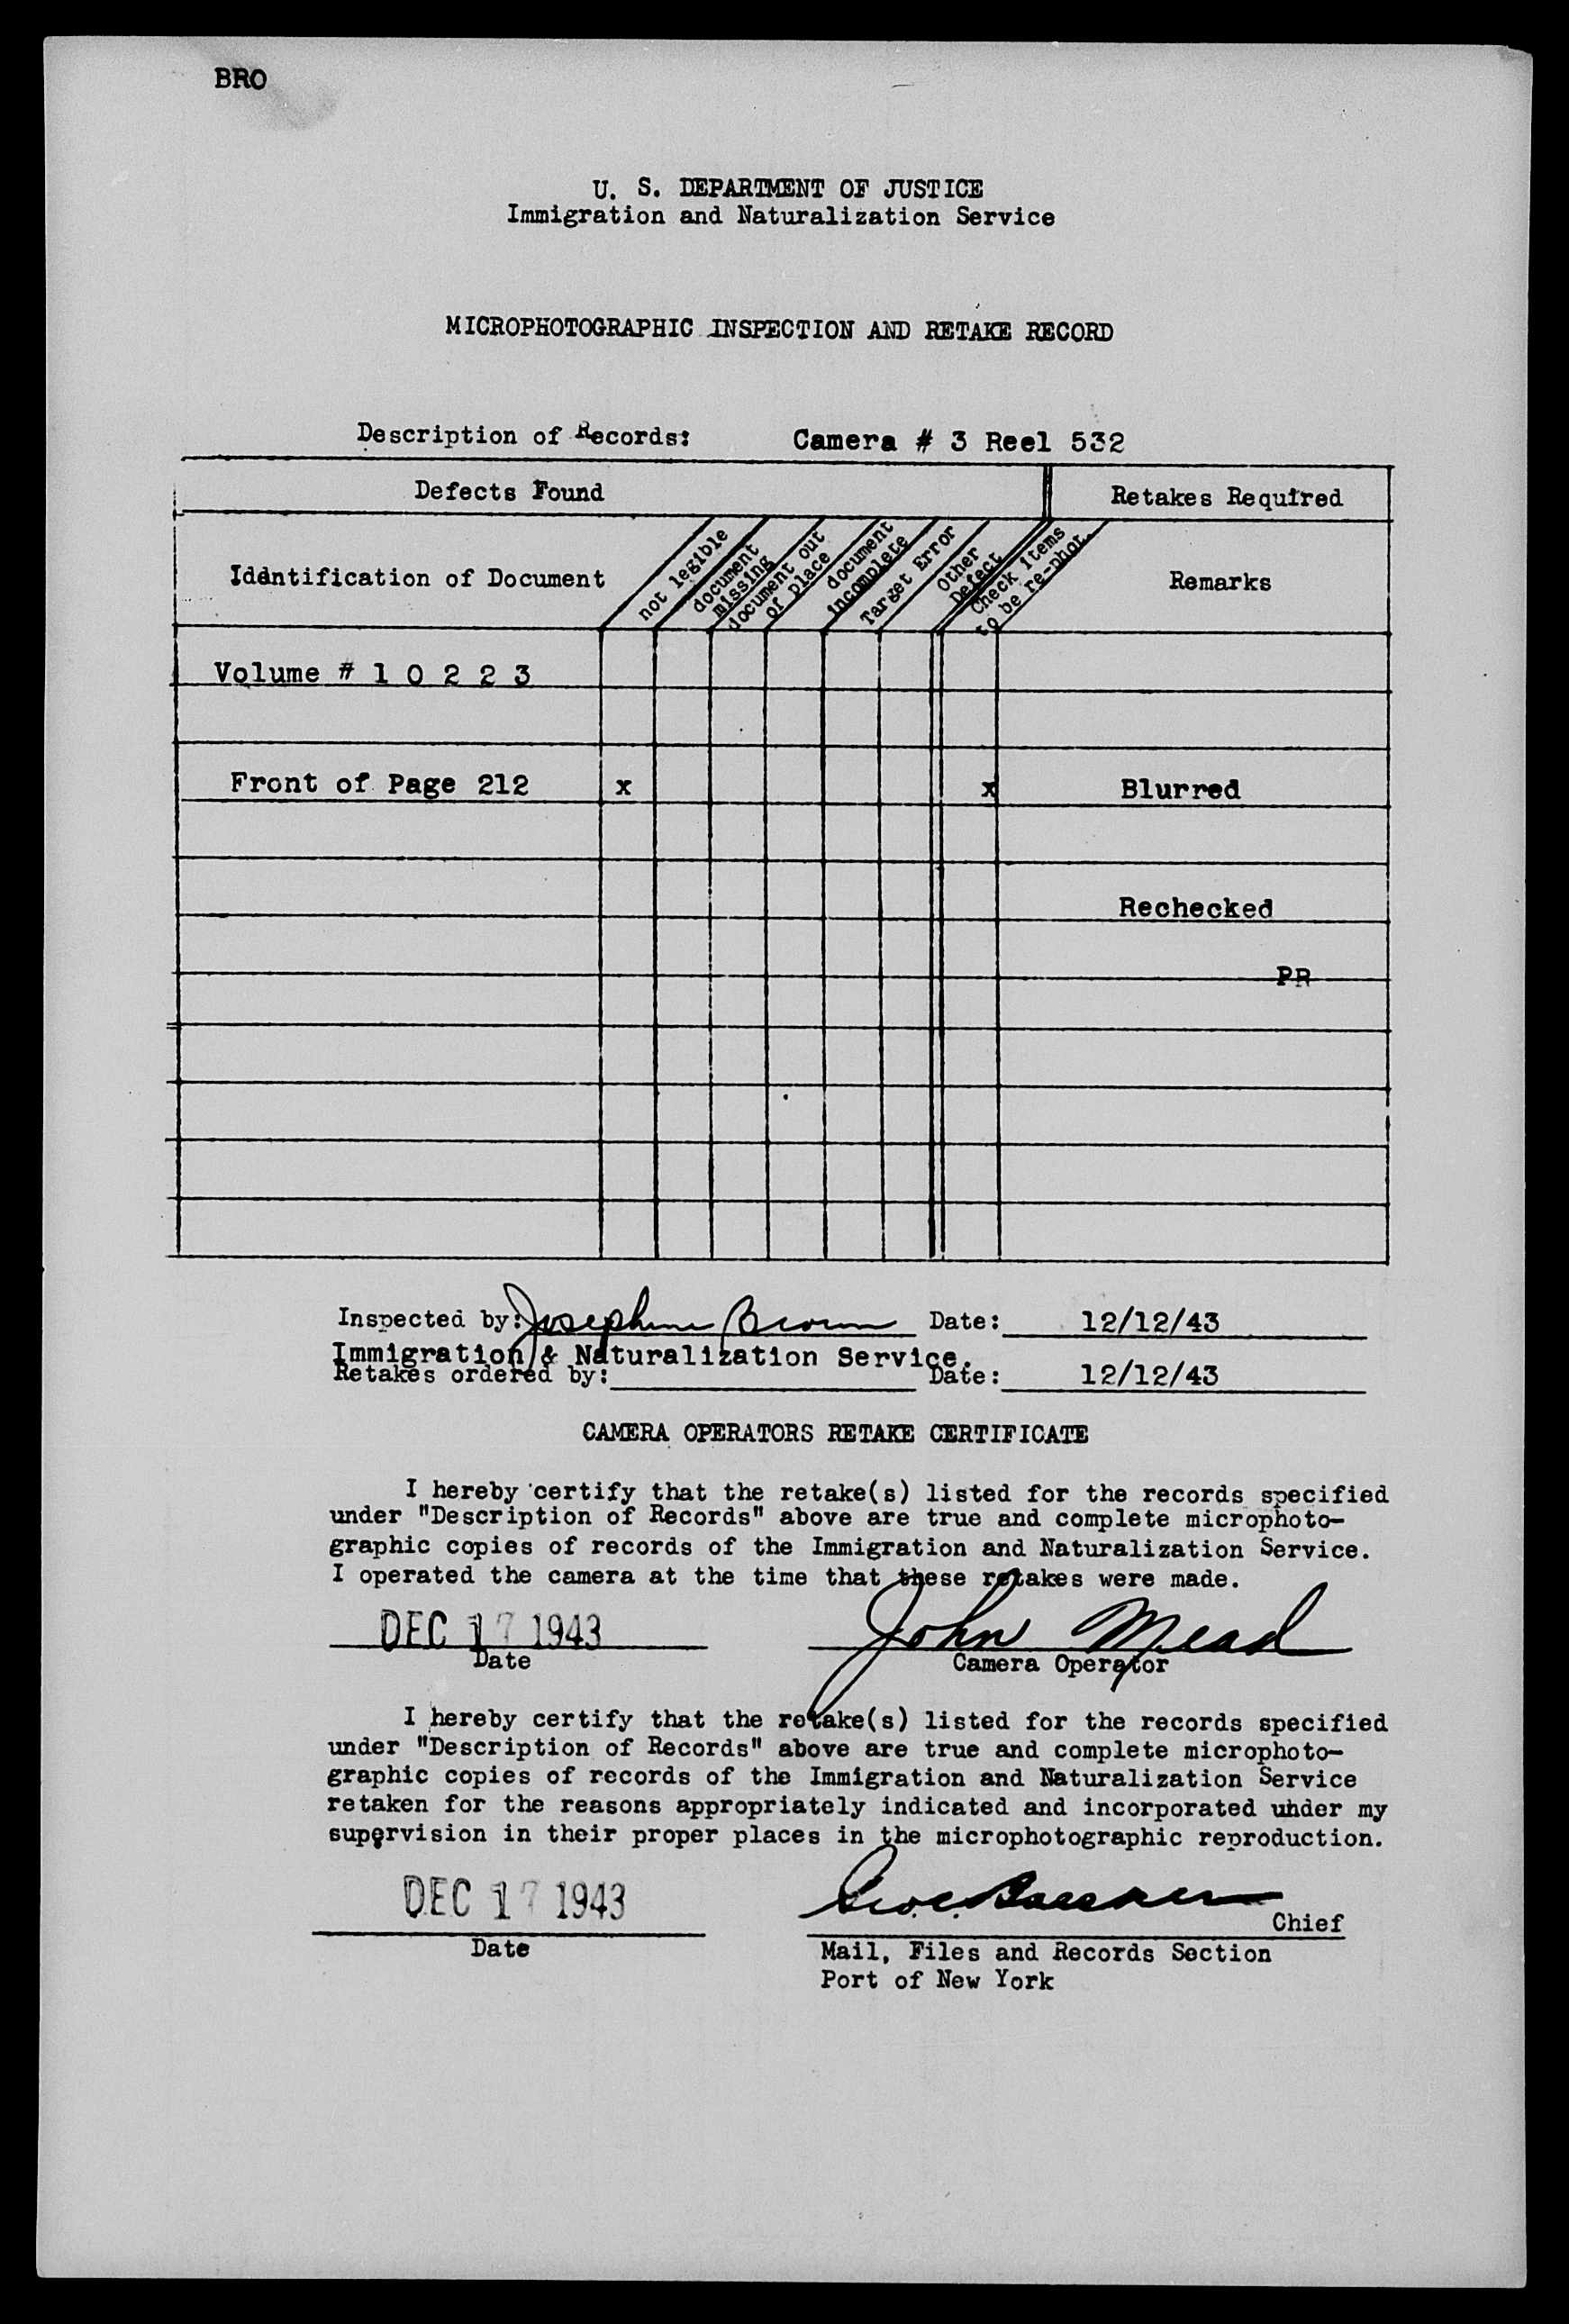 BRO
U. S. DEPARTMENT OF JUSTICE
Immigration and Naturalization Service
MICROPHOTOGRAPHIC INSPECTION AND RETAKE RECORD
Description of Records: Camera # 3 Reel 532
Defects Found Retakes Required
Identification of Document not legible document missing document out of place document incomplete Target Error Other Defect Check items to be re-phot. Remarks
Volume # 1 0 2 2 3
Front of Page 212 x x Blurred
Rechecked
PR
Inspected by: Josephine Brown Date: 12/12/43
Immigration & Naturalization Service.
Retakes ordered by: Date: 12/12/43
CAMERA OPERATORS RETAKE CERTIFICATE
I hereby certify that the retake(s) listed for the records specified
under "Description of Records" above are true and complete microphoto-
graphic copies of records of the Immigration and Naturalization Service.
I operated the camera at the time that these retakes were made.
DEC 17 1943 John Mead
Date Camera Operator
I hereby certify that the retake(s) listed for the records specified
under "Description of Records" above are true and complete microphoto-
graphic copies of records of the Immigration and Naturalization Service
retaken for the reasons appropriately indicated and incorporated under my
supervision in their proper places in the microphotographic reproduction.
DEC 17 1943
Chief
Date Mail, Files and Records Section
Port of New York